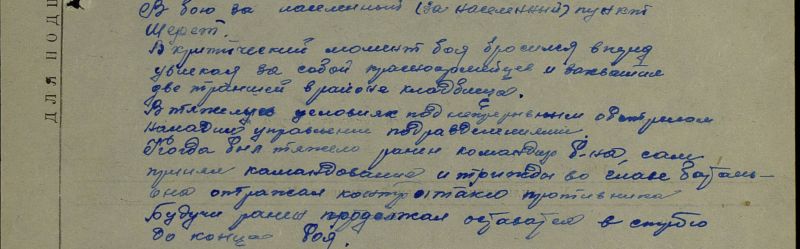 ДЛЯ ПОДШ
В бою за населенный (за населенный) пункт
Шерст.
В критический момент боя бросился вперед
увлекая за собой красноармейцев и захватил
две траншеи в районе кладбища.
В тяжелых условиях под непрерывным обстрелом
наладил управление подразделениями.
Когда был тяжело ранен командир б-на, сам
принял командование и трижды во главе баталь-
она отражал контратаки противника
Будучи ранен продолжал оставатся в строю
до конца боя.